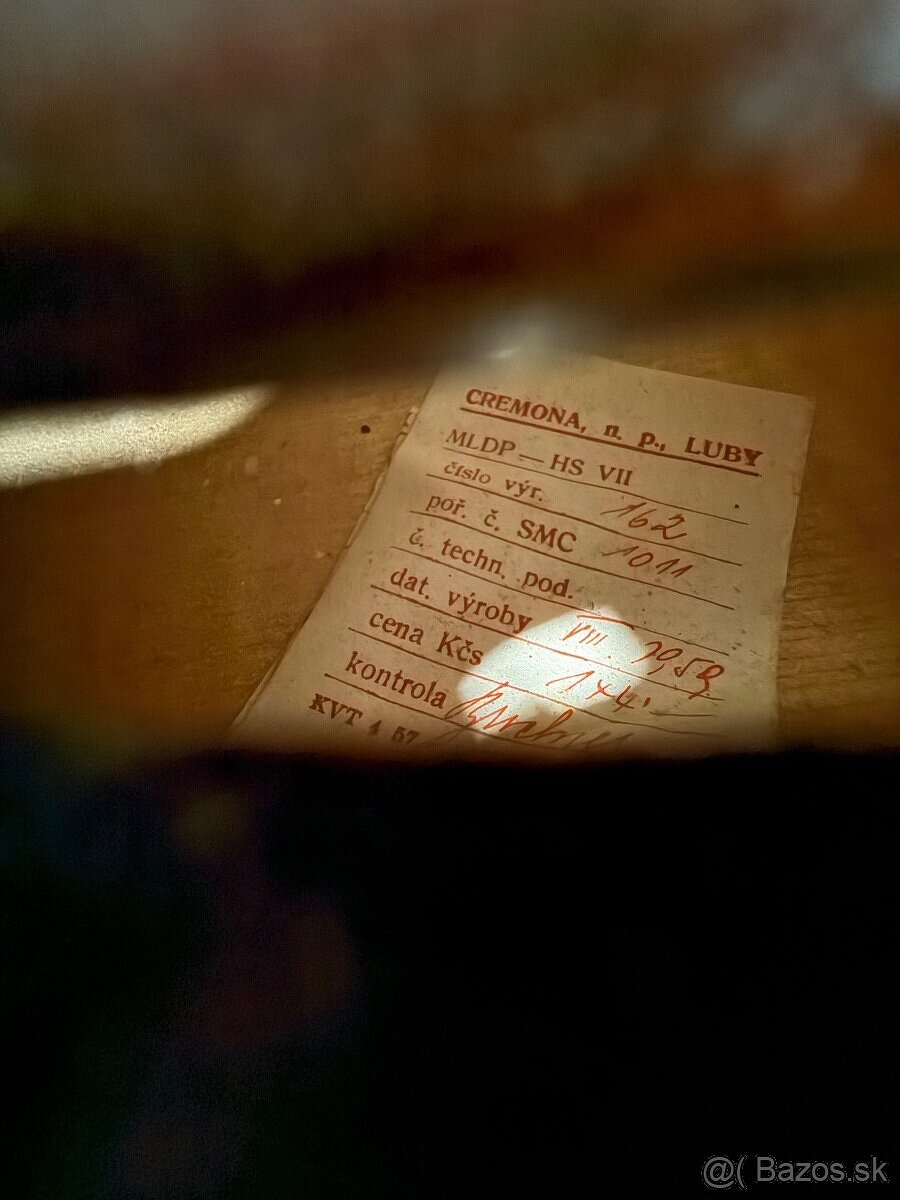 CREMONA, n. p., LUBY
MLDP — HS VII
číslo výr. 162
poř. č. SMC 1011
č. techn. pod.
dat. výroby VIII. 1959
cena Kčs 144.—
kontrola
KVT 4 57
@( Bazos.sk